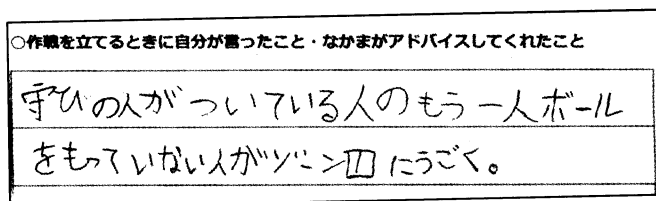 ○作戦を立てるときに自分が言ったこと・なかまがアドバイスしてくれたこと
守びの人がついている人のもう一人ボール
をもっていない人がゾーン にうごく。